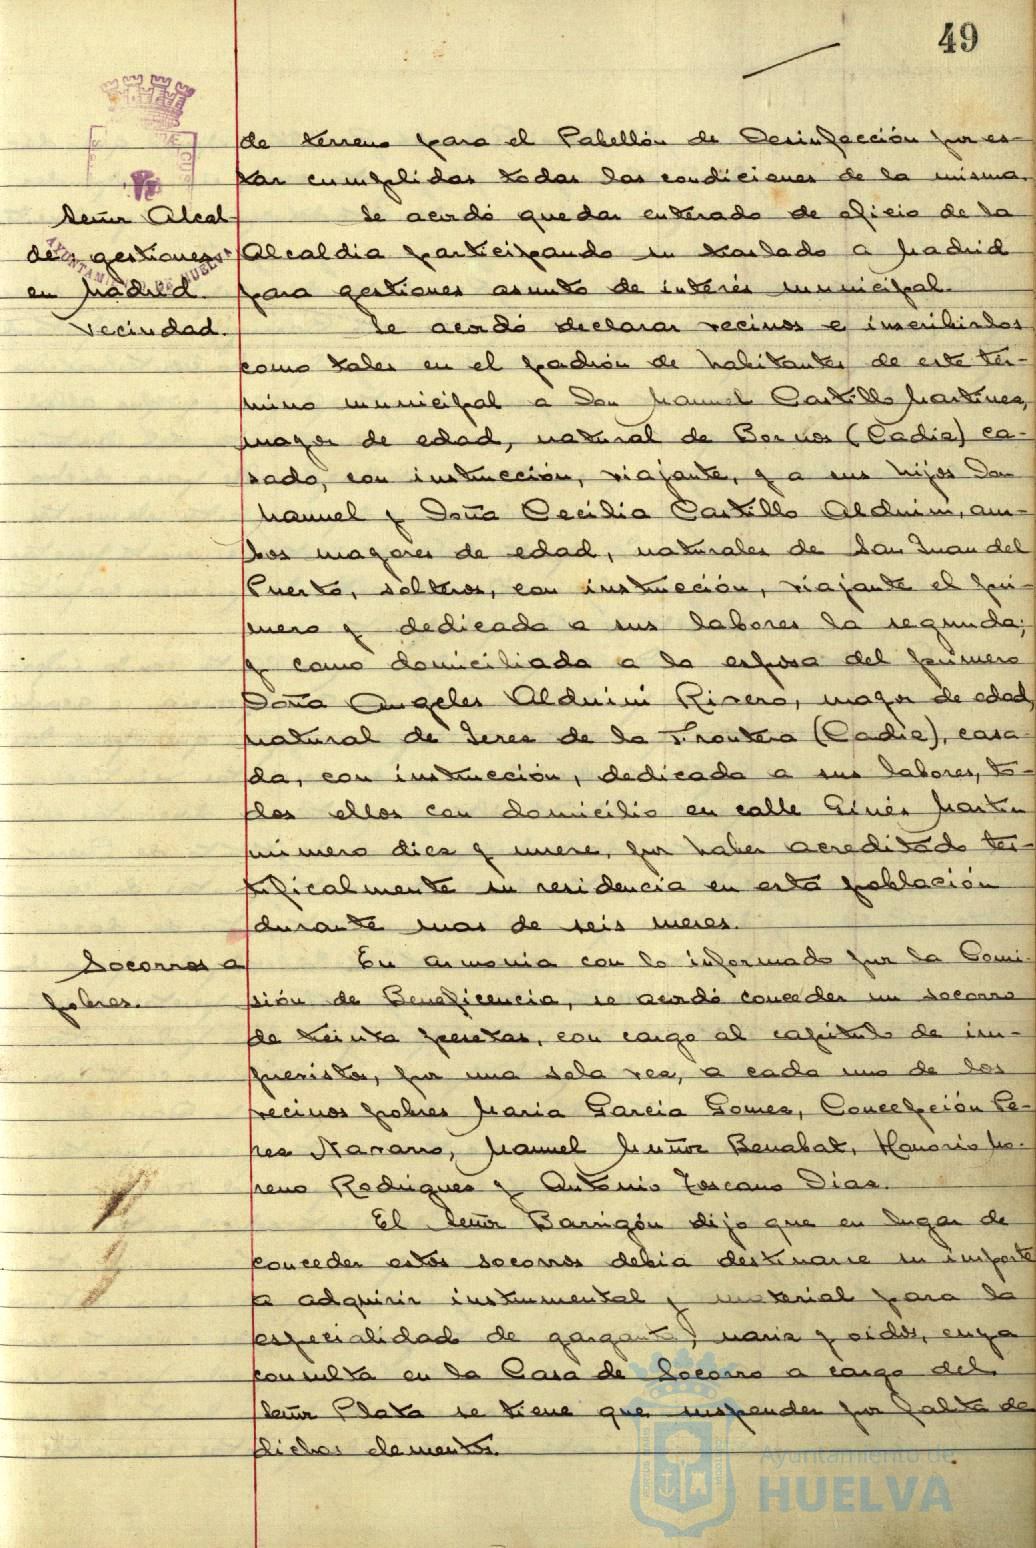 49
de terreno para el Pabellón de Desinfección por es-
tar cumplidas todas las condiciones de la misma.
Señor Alcal-
de, gestiones
en Madrid.
Se acordó quedar enterado de oficio de la
Alcaldia participando su traslado a Madrid
para gestionar asunto de interés municipal.
Vecindad.
Se acordó declarar vecinos e inscribirlos
como tales en el padrón de habitantes de este tér-
mino municipal a Don Manuel Castillo Martinez,
mayor de edad, natural de Bornos (Cadiz) ca-
sado, con instrucción, viajante, y a sus hijos Don
Manuel y Doña Cecilia Castillo Alduini, am-
bos mayores de edad, naturales de San Juan del
Puerto, solteros, con instrucción, viajante el pri-
mero y dedicada a sus labores la segunda;
y como domiciliada a la esposa del primero
Doña Angeles Alduini Rivero, mayor de edad,
natural de Jerez de la Frontera (Cadiz), casa-
da, con instrucción, dedicada a sus labores, to-
dos ellos con domicilio en calle Ginés Martin
número diez y nueve, por haber acreditado tes-
tificalmente su residencia en esta población
durante mas de seis meses.
Socorros a
pobres.
En armonia con lo informado por la Comi-
sión de Beneficencia, se acordó conceder un socorro
de treinta pesetas, con cargo al capitulo de im-
previstos, por una sola vez, a cada uno de los
vecinos pobres Maria Garcia Gomez, Concepción Pe-
rez Navarro, Manuel Muñoz Benabat, Honorio Mo-
reno Rodriguez y Antonio Toscano Diaz.
El Señor Barrigón dijo que en lugar de
conceder estos socorros debia destinarse su importe
a adquirir instrumental y material para la
especialidad de garganta, nariz y oidos, cuya
consulta en la Casa de Socorro a cargo del
Señor Plata se tiene que suspender por falta de
dichos elementos.
AYUNTAMIENTO DE HUELVA
Ayuntamiento de
HUELVA